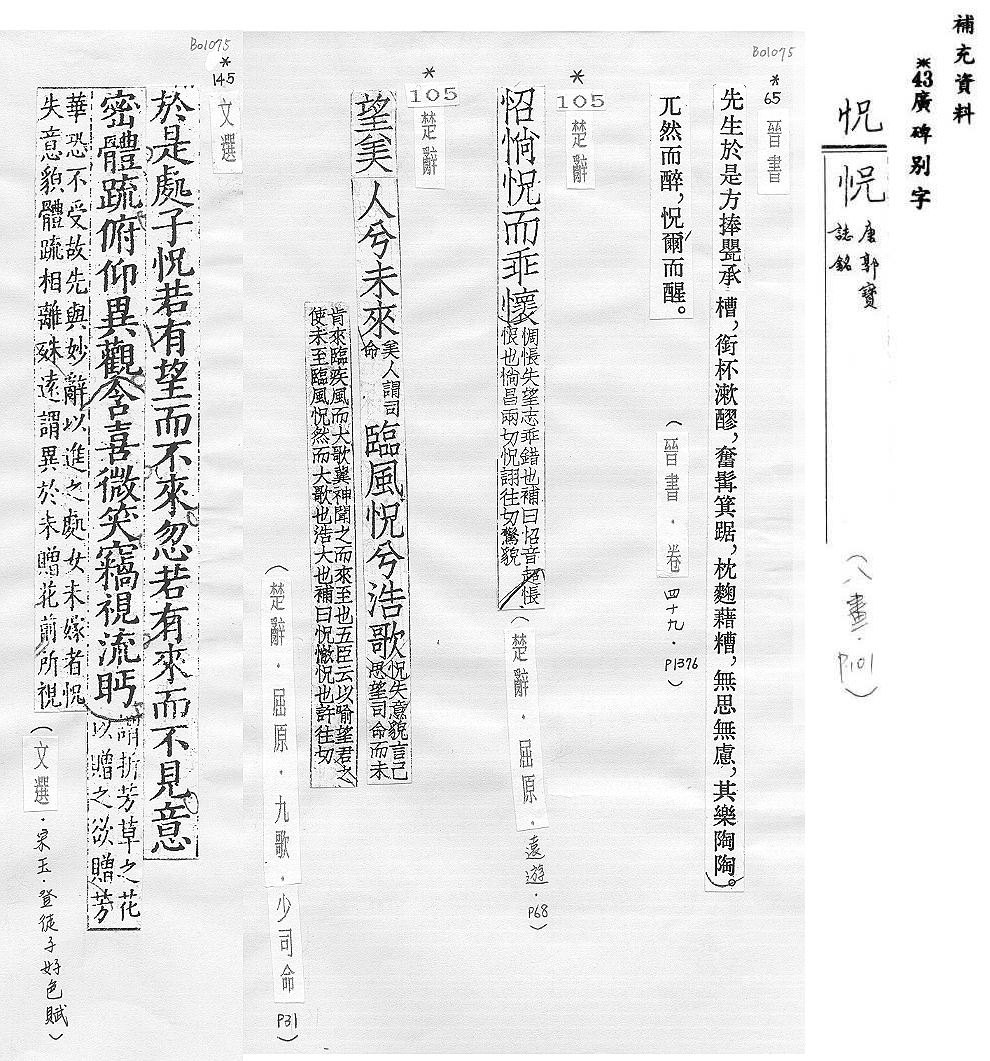 補充資料
※43廣碑別字
怳
怳
唐郭寶
誌銘
(八畫.P101)
B01075
*
65
晉書
先生於是方捧甖承槽,銜杯漱醪,奮髯箕踞,枕麴藉糟,無思無慮,其樂陶陶。
兀然而醉,怳爾而醒。
(晉書.卷四十九.P1376)
*
105
楚辭
怊惝怳而乖懷
惆悵失望志乖錯也補曰怊音超悵
恨也惝昌兩切怳詡往切驚貌
(楚辭.屈原.遠遊.P68)
*
105
楚辭
望美人兮未來
美人謂司
命
臨風怳兮浩歌
怳失意貌言己
思望司命而未
肯來臨疾風而大歌冀神聞之而來至也五臣云以喻望君之
使未至臨風怳然而大歌也浩大也補曰怳懒怳也許往切
(楚辭.屈原.九歌.少司命P31)
B01075
*
145
文選
於是處子怳若有望而不來忽若有來而不見意
密體疏俯仰異觀含喜微笑竊視流眄
謂折芳草之花
以贈之欲贈芳
華恐不受故先與妙辭以進之處女未嫁者怳
失意貌體疏相離殊遠謂異於未贈花前所視
(文選.宋玉.登徒子好色賦)